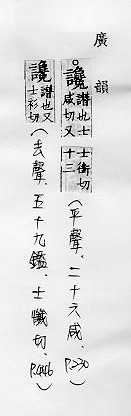 廣韻
。讒 譖也士咸切又士銜切十三(平聲.二十六咸.P.230)
讒 譖也又士衫切(去聲.五十九鑑.士懺切.P.446)